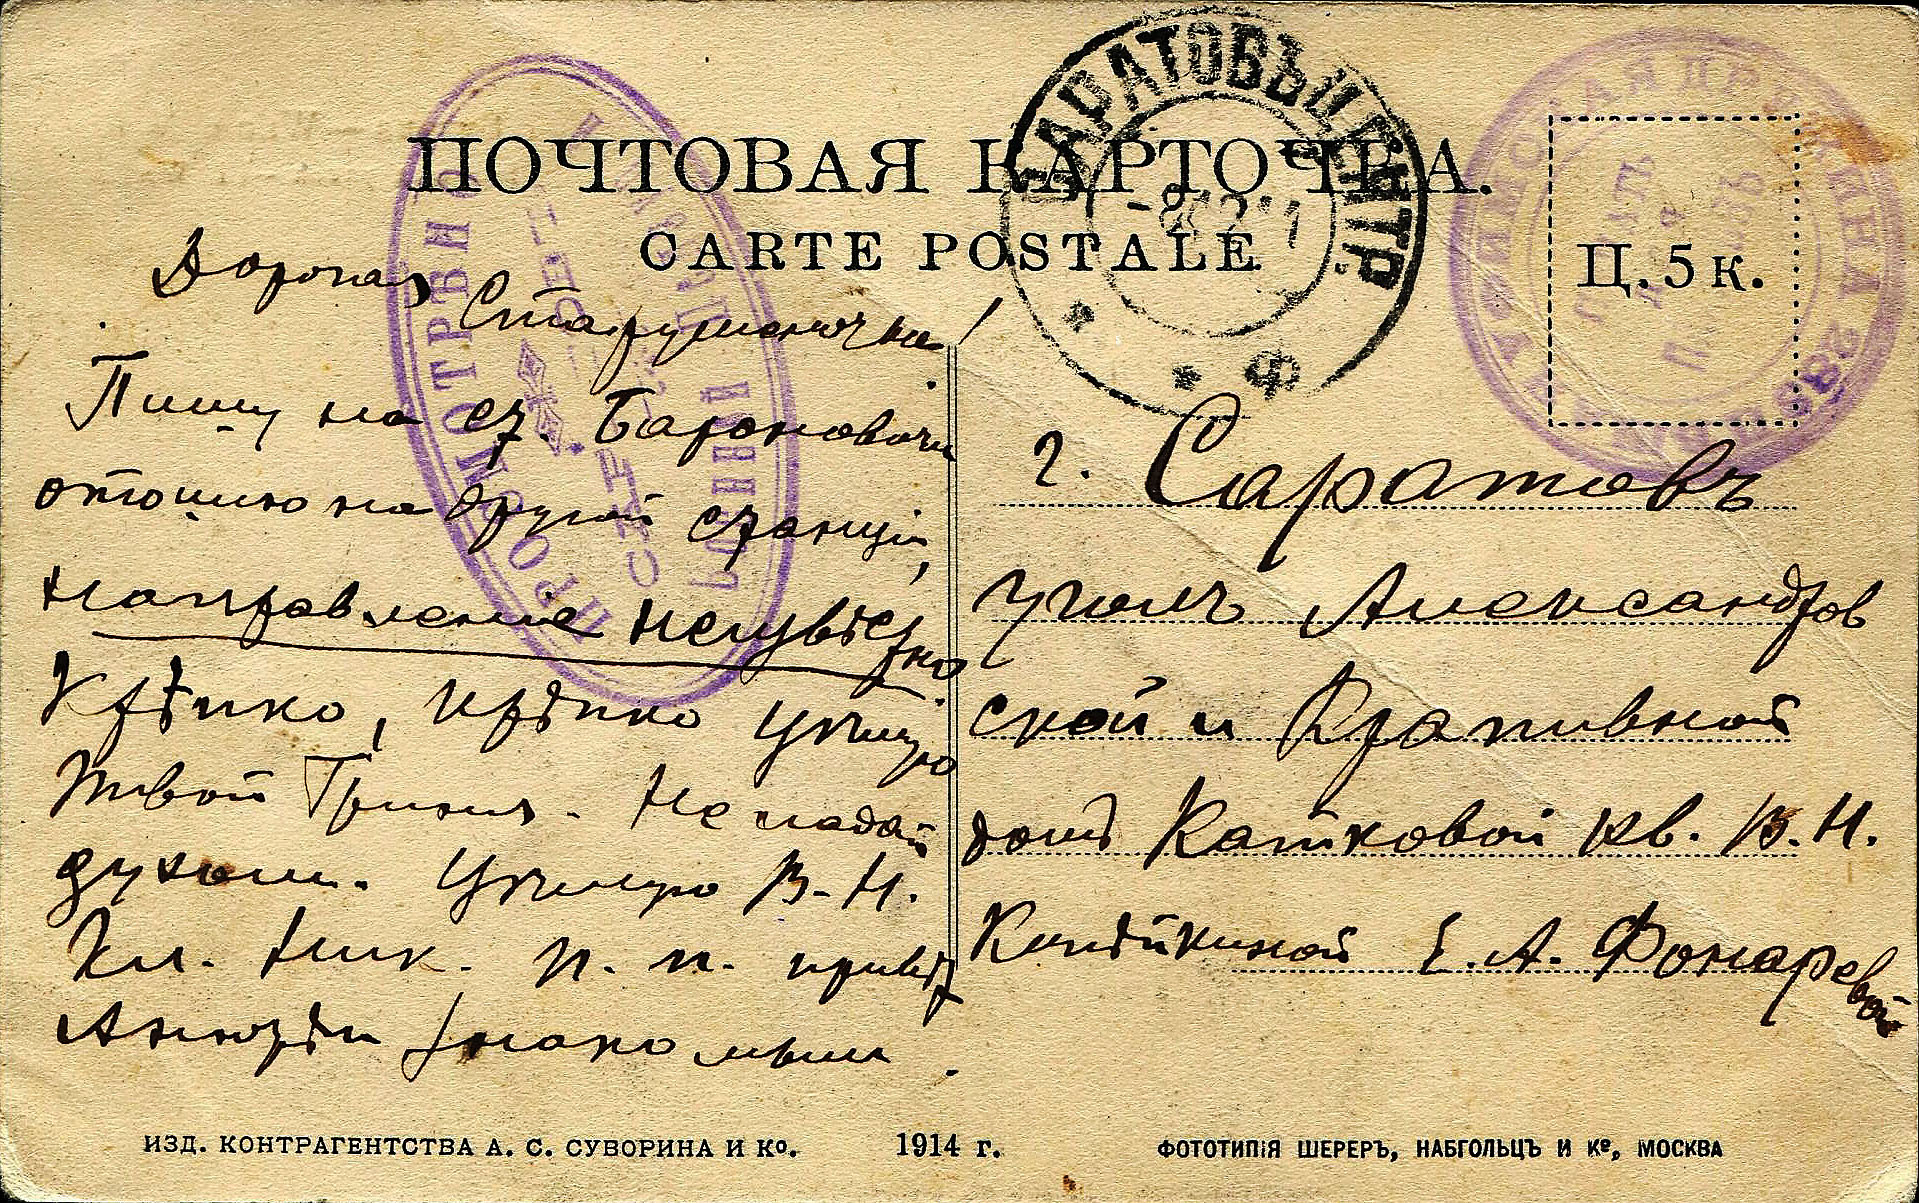 ПОЧТОВАЯ КАРТОЧКА.
CARTE POSTALE
САРАТОВЪ ЦЕНТР.
Ц. 5 к.
ПРОСМОТРѢНО
Дорогая
Старушоночка!
Пишу на ст. Барановичи
отошлю на другой станціи,
направленіе неизвѣстно
Крѣпко, крѣпко цѣлую
Твой Гриня. Не падай
духомъ. Цѣлую В. Н.
Кл. Ник. П. П. привѣт
Анютѣ и знакомымъ.
г. Саратовъ
уголъ Александров
ской и Крапивной
домъ Катковой кв. В. Н.
Е. А. Фонаревой
ИЗД. КОНТРАГЕНТСТВА А. С. СУВОРИНА И Ко. 1914 г. ФОТОТИПІЯ ШЕРЕРЪ, НАБГОЛЬЦЪ И Ко, МОСКВА